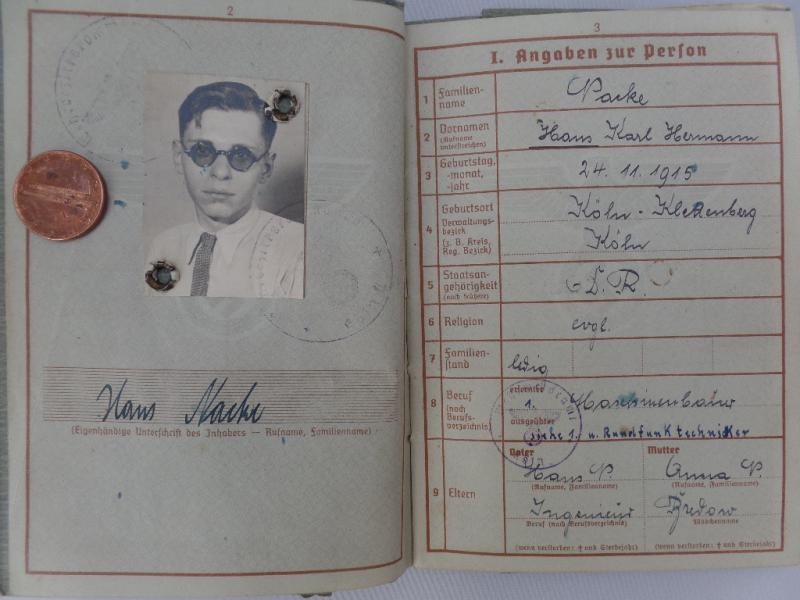 2
Hans
(Eigenhändige Unterschrift des Inhabers — Rufname, Familienname)
3
I. Angaben zur Person
1 Familien-
name
2 Vornamen
(Rufname
unterstreichen)
Hans Karl Hermann
3 Geburtstag,
-monat,
-jahr
24. 11. 1915
4 Geburtsort
Verwaltungs-
bezirk
(z. B. Kreis,
Reg. Bezirk)
Köln - Klettenberg
Köln
5 Staatsan-
gehörigkeit
(auch frühere)
D. R.
6 Religion
evgl.
7 Familien-
stand
ledig
8 Beruf
(nach
Berufs-
verzeichnis)
erlernter
1. Maschinenbauer
ausgeübter
siehe 1. u. Rundfunktechniker
9 Eltern
Vater
Hans P.
(Rufname, Familienname)
Ingenieur
Beruf (nach Berufsverzeichnis)
(wenn verstorben: † und Sterbejahr)
Mutter
Anna P.
(Rufname, Familienname)
Bredow
Mädchenname
(wenn verstorben: † und Sterbejahr)